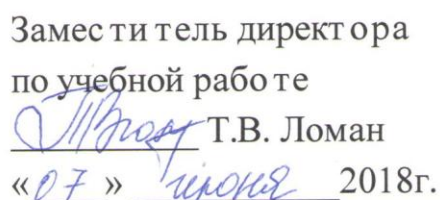 Заместитель директора
по учебной работе
Т.В. Ломан
«07» июня 2018г.